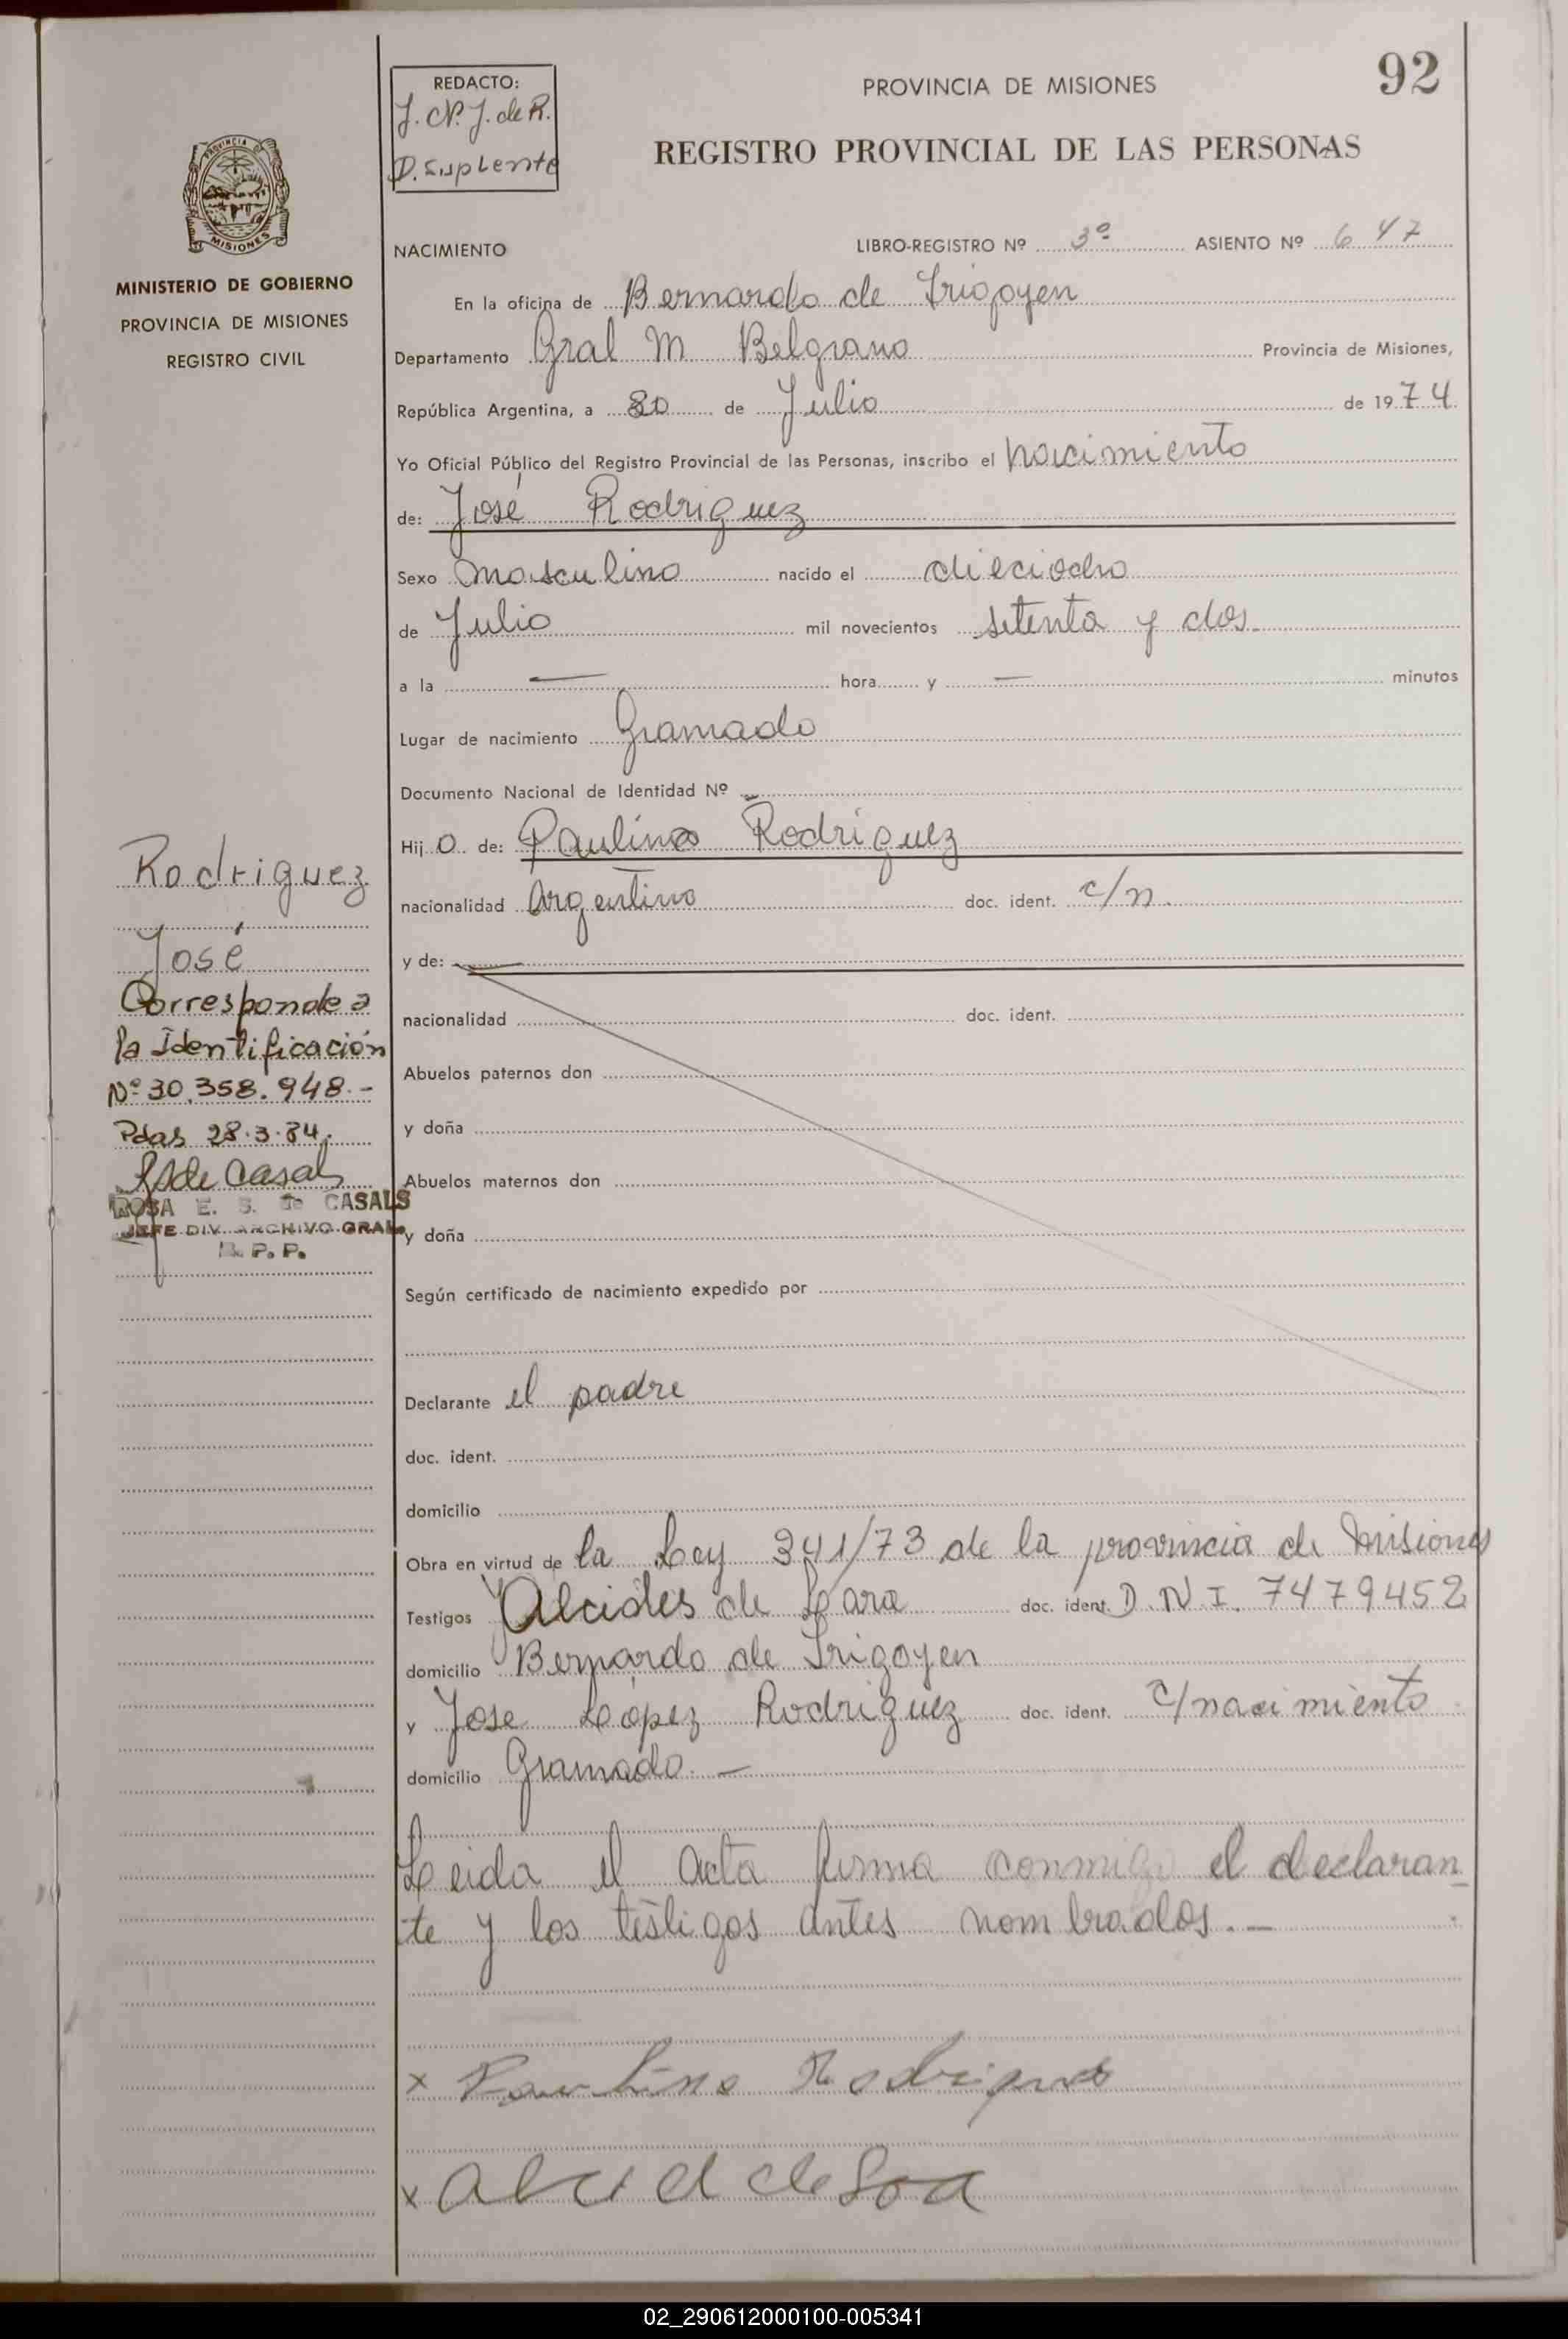 92
REDACTO:
J. N. J. de R.
D. Suplente
PROVINCIA DE MISIONES
REGISTRO PROVINCIAL DE LAS PERSONAS
PROVINCIA DE
MISIONES
MINISTERIO DE GOBIERNO
PROVINCIA DE MISIONES
REGISTRO CIVIL
NACIMIENTO LIBRO-REGISTRO Nº 3º ASIENTO Nº 647
En la oficina de Bernardo de Irigoyen
Departamento Gral M Belgrano Provincia de Misiones,
República Argentina, a de Julio de 1974
Yo Oficial Público del Registro Provincial de las Personas, inscribo el nacimiento
de: José Rodriguez
Sexo masculino nacido el dieciocho
de Julio mil novecientos setenta y dos.
a la — hora y — minutos
Lugar de nacimiento Gramado
Documento Nacional de Identidad Nº —
Hij o de: Paulino Rodriguez
nacionalidad Argentino doc. ident. c/n.
y de: —
nacionalidad doc. ident.
Abuelos paternos don
y doña
Abuelos maternos don
y doña
Según certificado de nacimiento expedido por
Declarante el padre
doc. ident.
domicilio
Obra en virtud de la Ley 341/73 de la provincia de Misiones
Testigos Alcides de Lara doc. ident. D.N.I. 7479452
domicilio Bernardo de Irigoyen
y Jose López Rodriguez doc. ident. c/nacimiento
domicilio Gramado. —
Leida el acta firma conmigo el declaran_
te y los testigos antes nombrados. —
x Paulino Rodrigues
x
Rodriguez
José
Corresponde a
la Identificación
Nº 30.358.948.-
Pdas 28.3.84.
de Casals
ROSA E. S. de CASALS
JEFE DIV. ARCHIVO GRAL.
R. P. P.
02_290612000100-005341